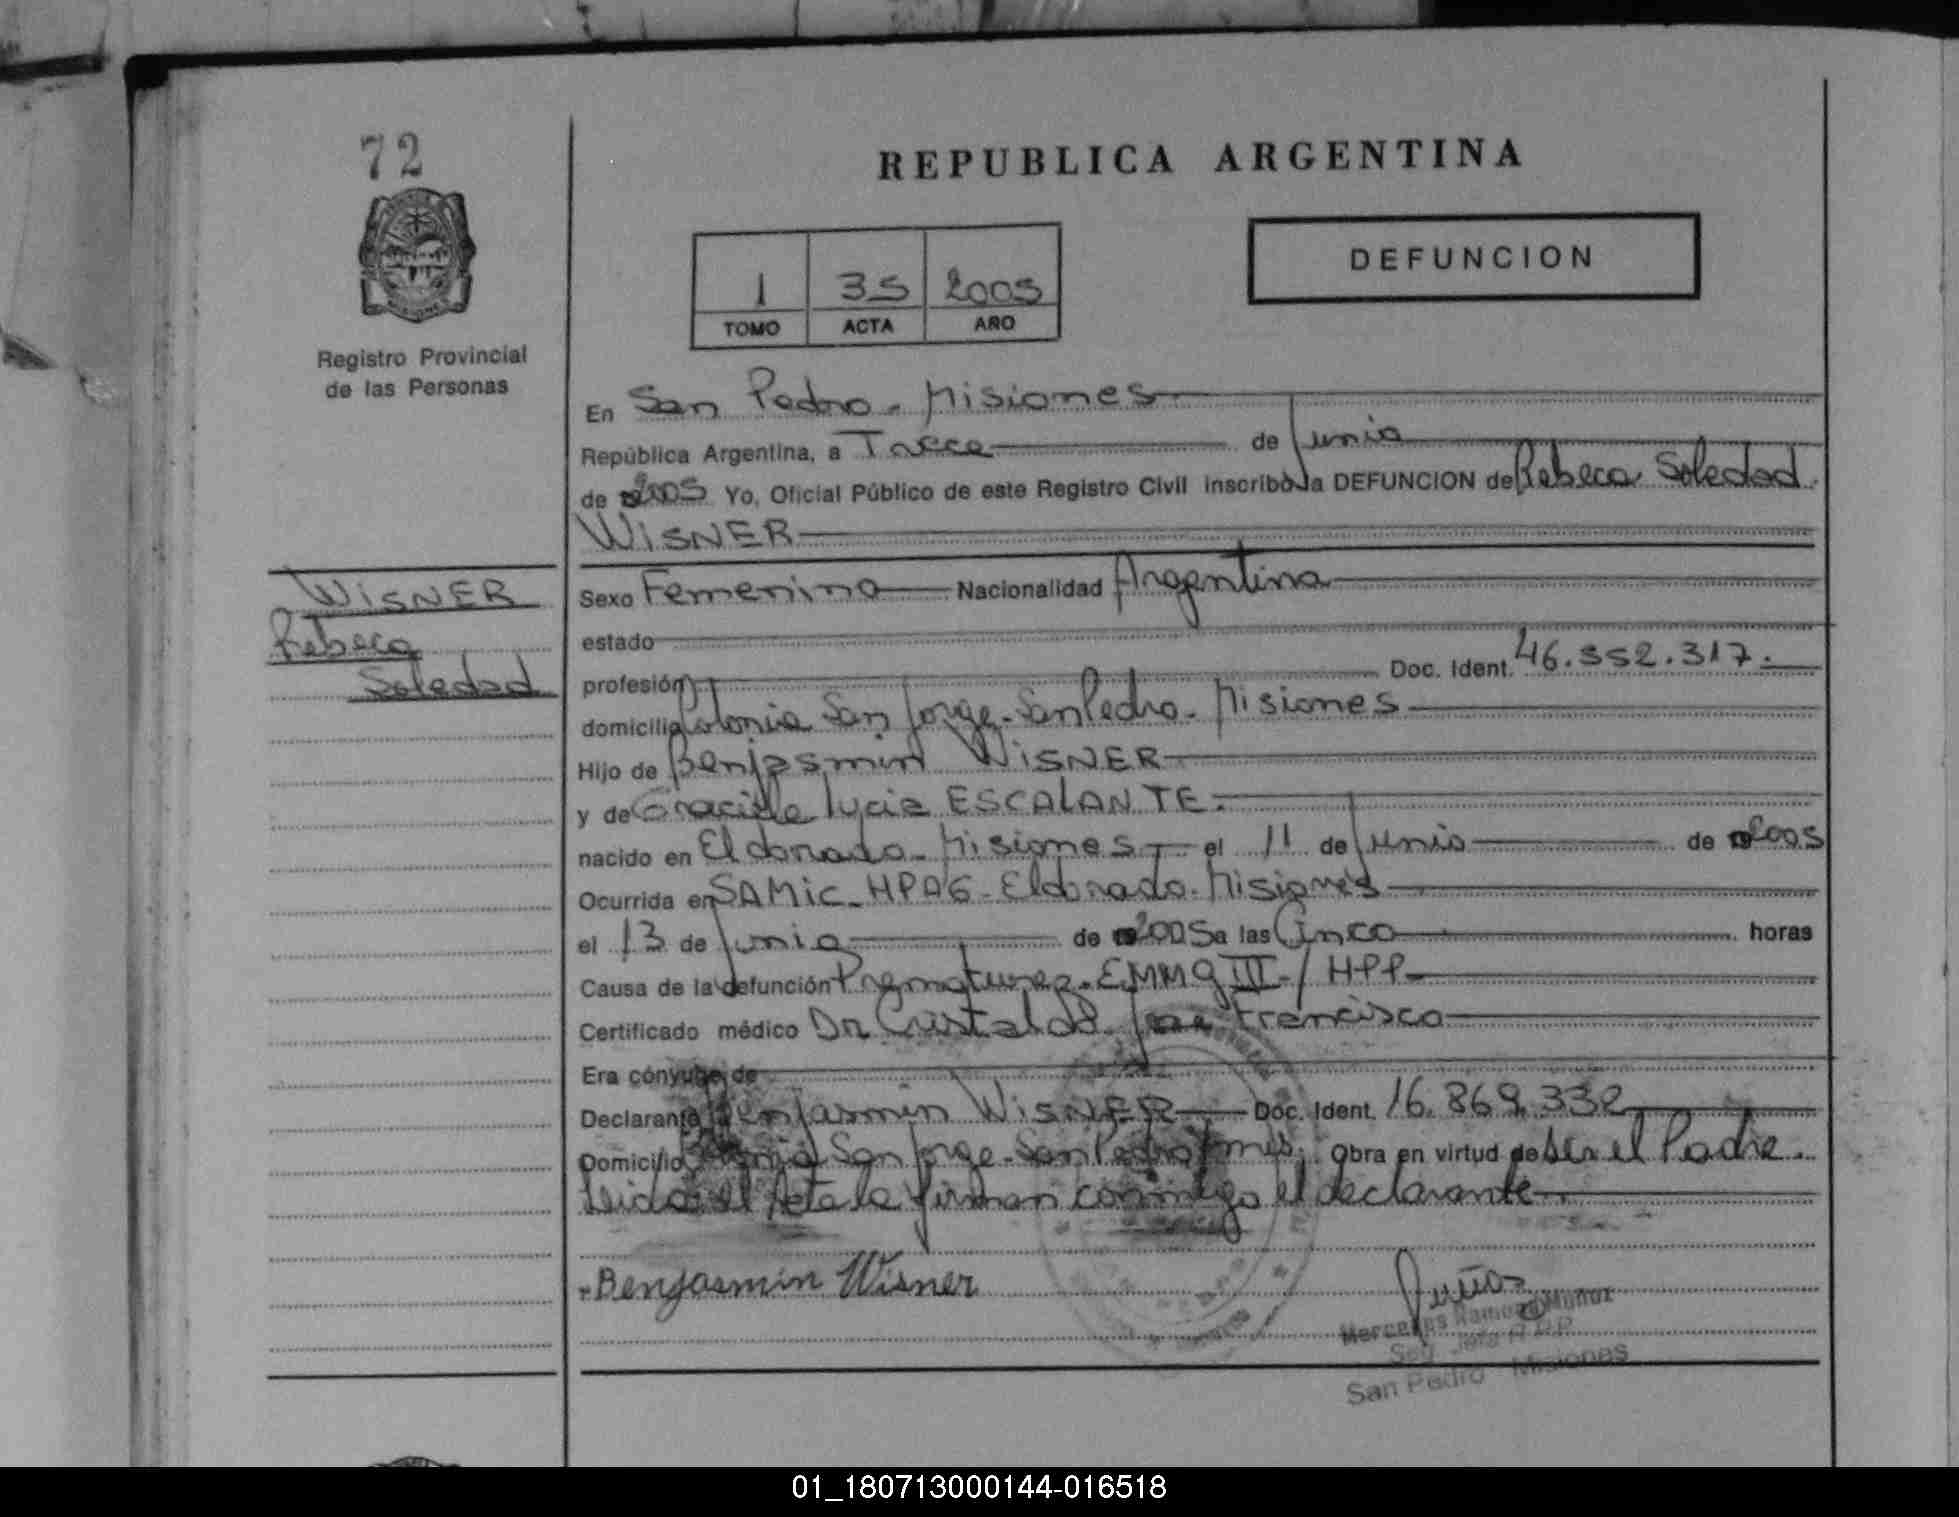 72
REPUBLICA ARGENTINA
DEFUNCION
1 35 2005
TOMO ACTA AÑO
Registro Provincial
de las Personas
En San Pedro - Misiones
República Argentina, a Trece de Junio
de 2005 Yo, Oficial Público de este Registro Civil inscribo la DEFUNCION de Rebeca Soledad
WISNER
WISNER
Rebeca
Soledad
Sexo Femenino Nacionalidad Argentina
estado
profesión Doc. Ident. 46.352.317.
domicilio Colonia San Jorge - San Pedro - Misiones
Hijo de Benjasmin WISNER
y de Graciela Lucia ESCALANTE.
nacido en Eldorado - Misiones el 11 de Junio de 2005
Ocurrida en SAMIC - Eldorado - Misiones
el 13 de Junio de 2005 a las Cinco horas
Causa de la defunción Prematurez - EMMG III - / HPP
Certificado médico Dr Cristaldo Jose Francisco
Era cónyuge de
Declarante Benjasmin WISNER Doc. Ident. 16.869.332
Domicilio Colonia San Jorge - San Pedro Obra en virtud de ser el Padre.
Leida el Acta la firman conmigo el declarante
Benjasmin Wisner
Mercedes Ramona Muñoz
San Pedro Misiones
01_180713000144-016518